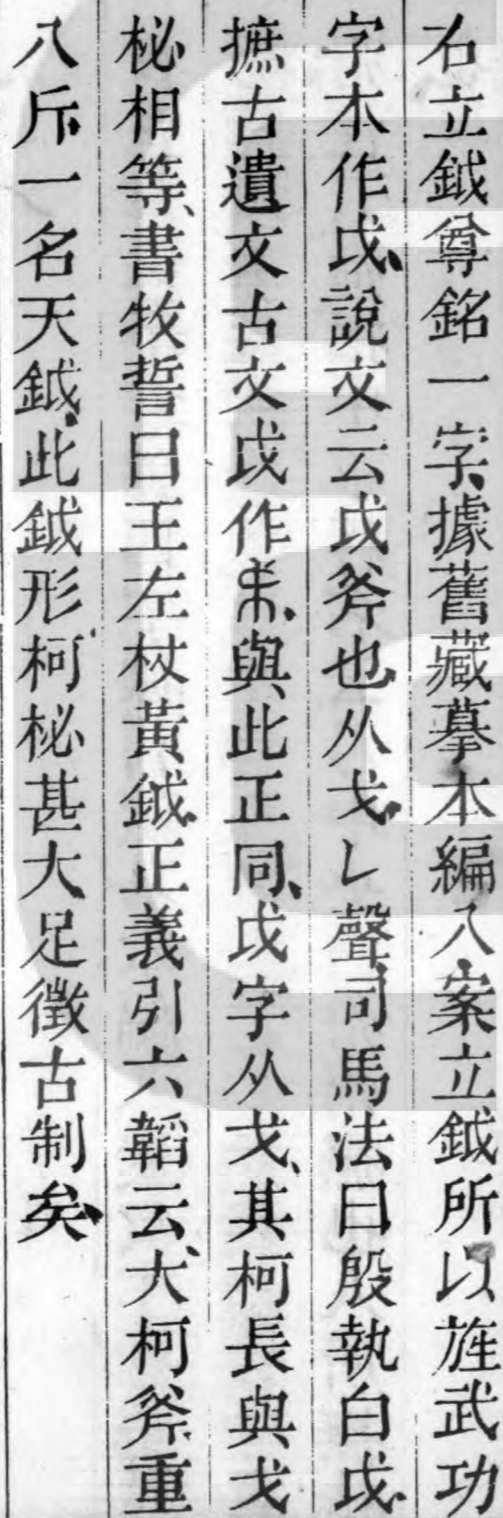 右立鉞尊銘一字據舊藏摹本編入案立鉞所以旌武功
字本作戉說文云戉斧也从戈𠄌聲司馬法曰殷執白戉
摭古遺文古文戉作，與此正同戉字从戈其柯長與戈
柲相等書牧誓曰王左杖黃鉞正義引六韜云大柯斧重
八斤一名天鉞此鉞形柯柲甚大足徵古制矣